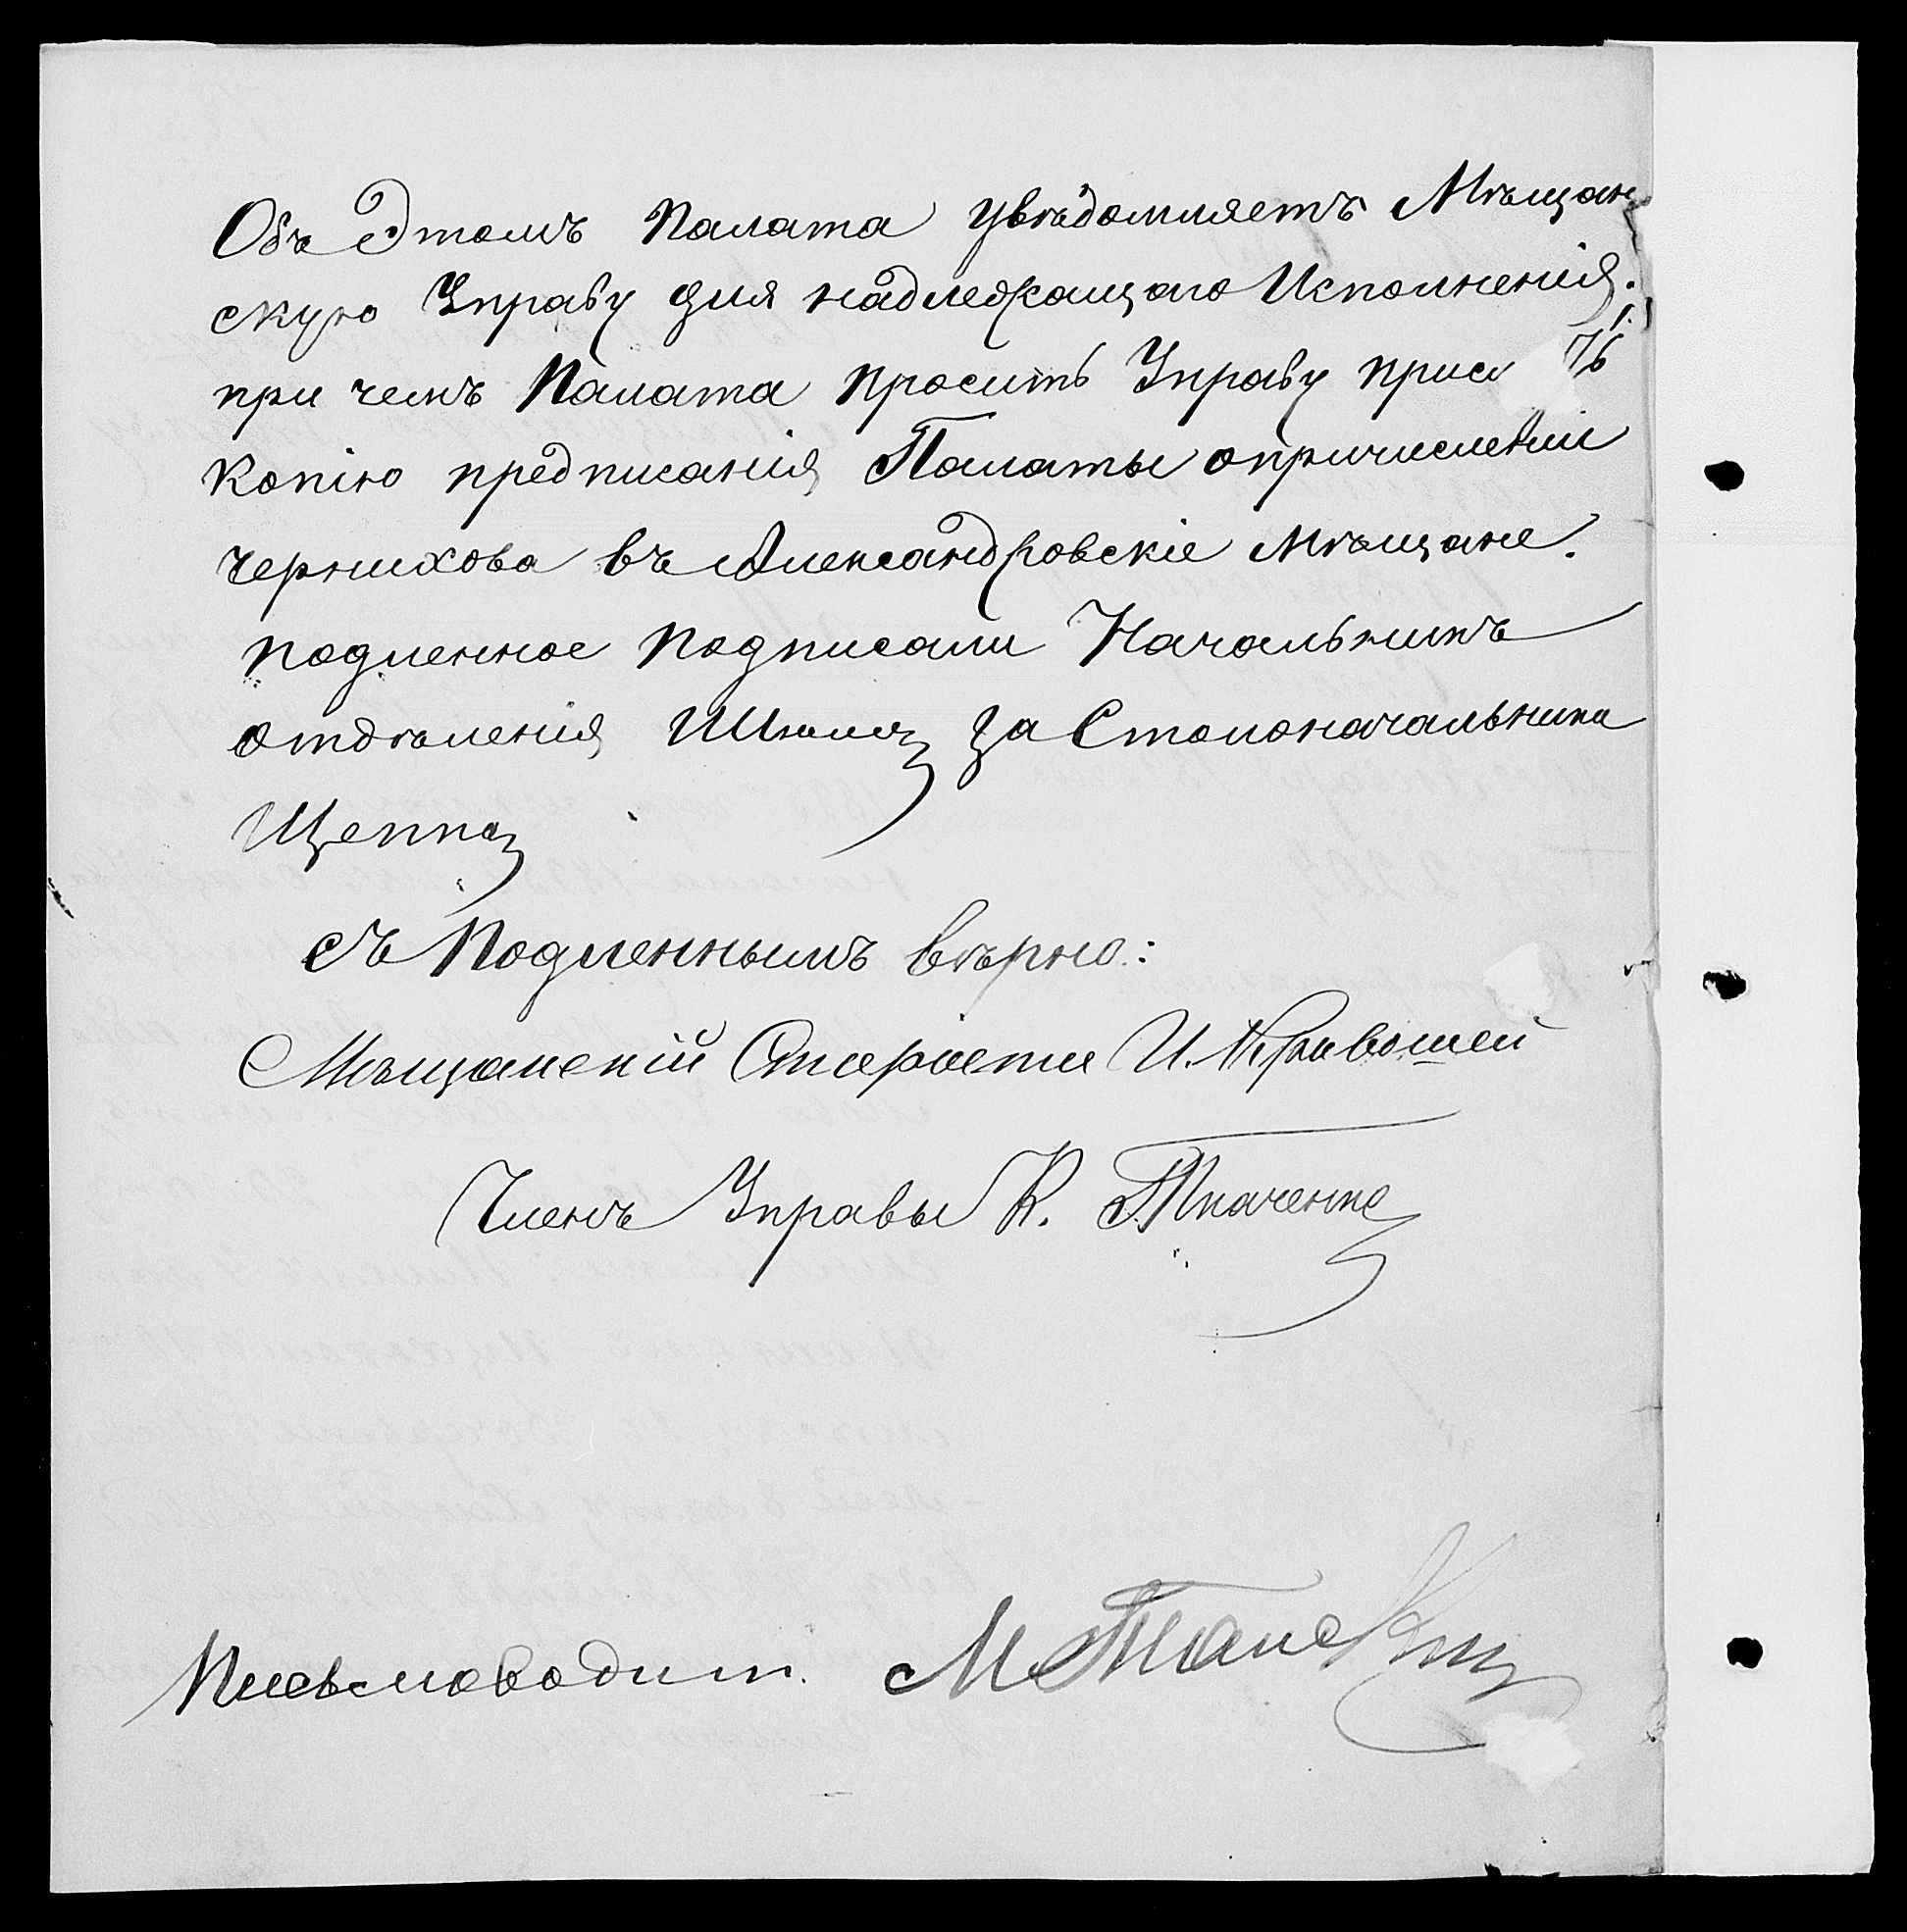 Объ Этомъ Палата увѣдомляетъ Мѣщан
скую Управу для надлежащаго Исполненія.
при чемъ Палата просить Управу
копію предписанія Палаты опричисленіи
Чернихова въ Александровскіе мѣщане.
подленное подписали Начальникъ
отдѣленія за Столоначальника
Щеппа
съ Подленнымъ вѣрно:
Мѣщанскій Староста И. Кривошей
Членъ Управы К. Ткаченко
Письмоводит.